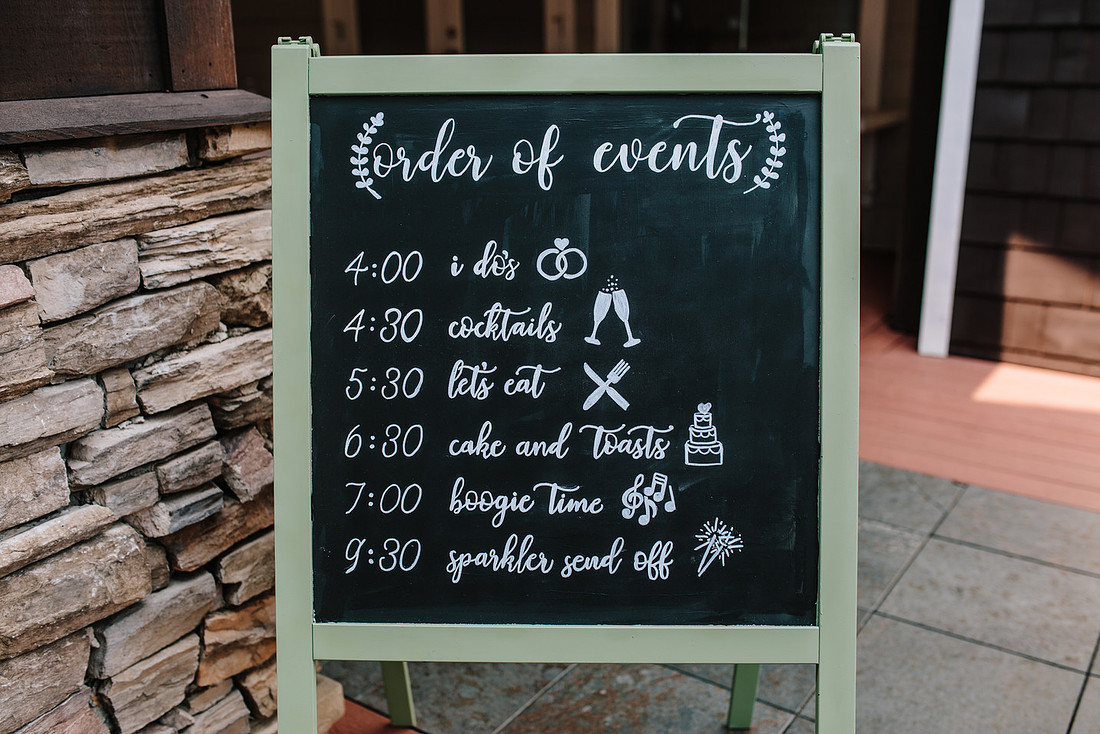 order of events
4:00 i do's
4:30 cocktails
5:30 let's eat
6:30 cake and toasts
7:00 boogie time
9:30 sparkler send off